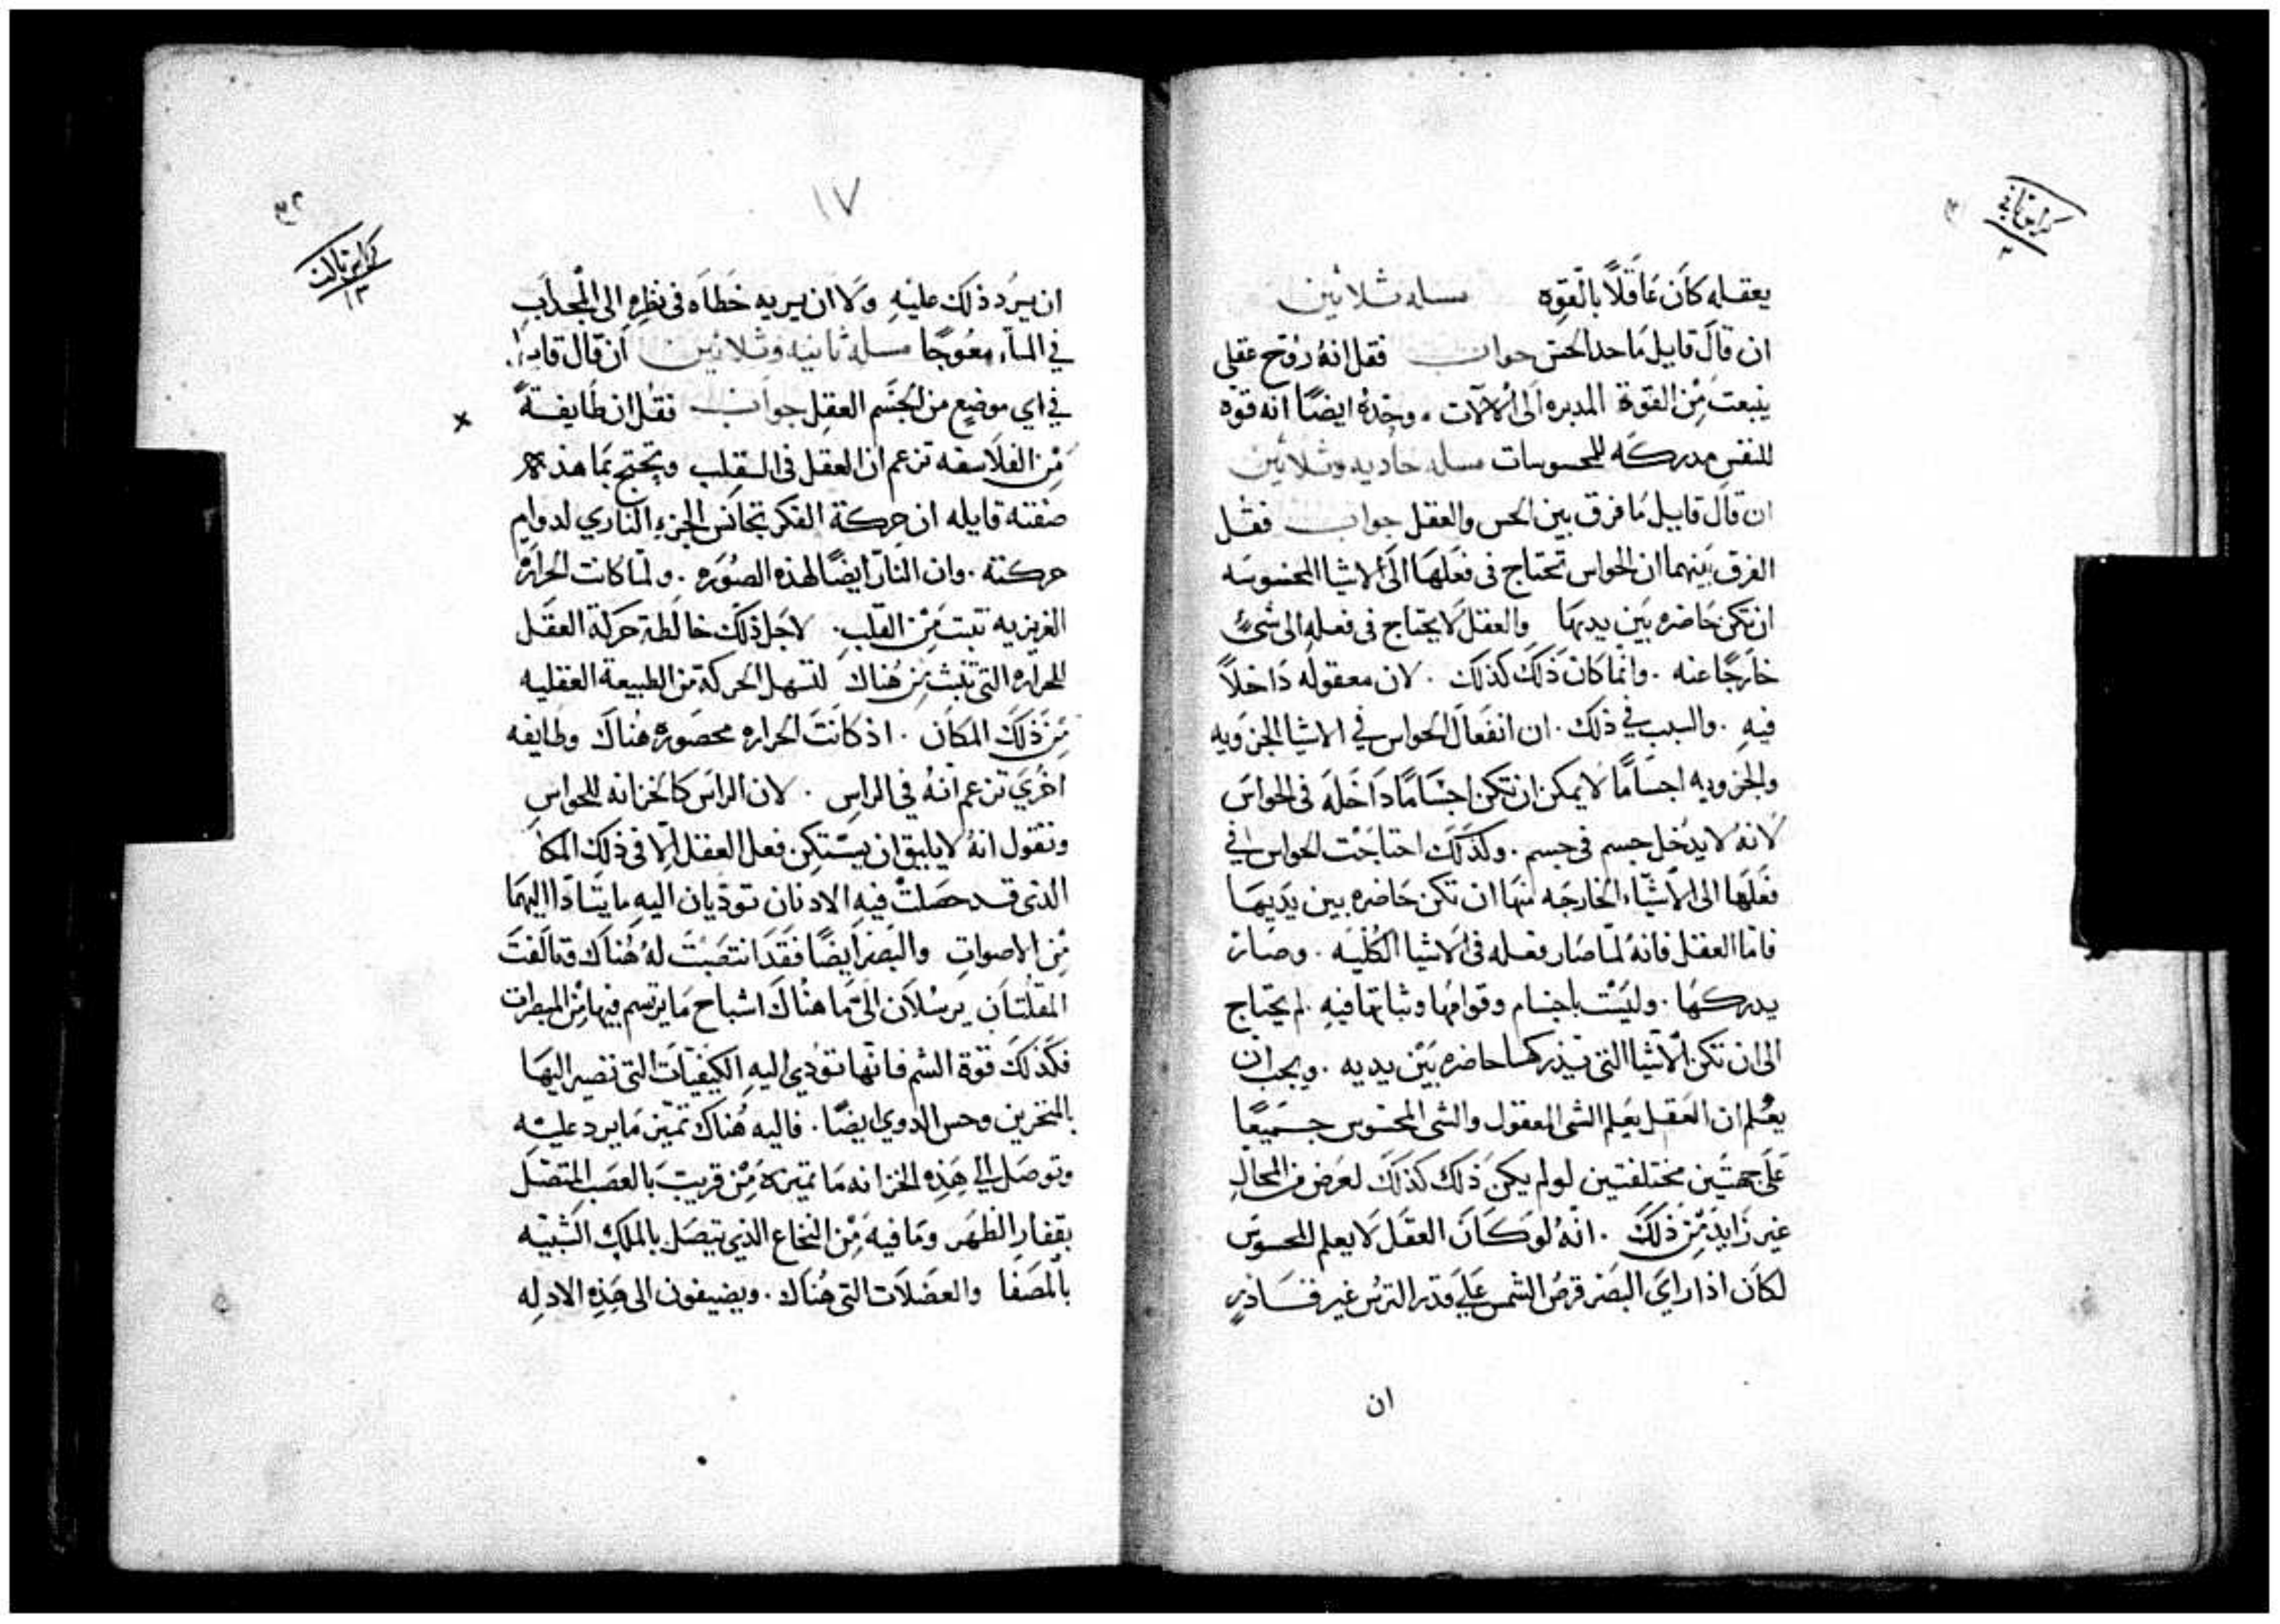 كراس ثاني
يعقله كان عاقلًا بالقوه مسله ثلاثين
ان قال قايل ما حد الحس جواب فقل انه روح عقلي
ينبعت من القوة المدبره الى الالات . وحده ايضًا انه قوه
للنفس مدركه للمحسوسات مسله حاديه وثلاثين
ان قال قايل ما فرق بين الحس والعقل جواب فقل
الفرق بينهما ان الحواس تحتاج في فعلها الى الاشيا المحسوسه
ان تكن حاضره بين يديها والعقل لا يحتاج في فعله الى شيءٍ
خارجًا عنه . وانما كان ذلك كذلك . لان معقوله داخلًا
فيه . والسبب في ذلك . ان انفعال الحواس في الاشيا الجزويه
والجزويه اجسامًا لا يمكن ان تكن اجسامًا داخله في الحواس
لانه لا يدخل جسم في جسم . وكذلك احتاجت الحواس في
فعلها الى الاشياء الخارجه منها ان تكن حاضره بين يديها
فاما العقل فانه لما صار فعله في الاشيا الكليه . وصار
يدركها . وليست باجسام وقوامها وثباتها فيه . لم يحتاج
الى ان تكن الاشيا التي يدركها حاضره بين يديه . ويجب ان
يعلم ان العقل يعلم الشي المعقول والشي المحسوس جميعًا
على جهتين مختلفتين لو لم يكن ذلك كذلك لعرض من المحال
غير زايد من ذلك . انه لو كان العقل لا يعلم المحسوس
لكان اذا راي البصر قرص الشمس علي قدر الترس غير قادرٍ
ان
١٧
كراس تالت
ان يرد ذلك عليه ولا ان يريه خطاه في نظره الى المجداب
في الماء معوجًا مسله ثانيه وثلاثين ان قال قايل
في اي موضع من الجسم العقل جواب فقل ان طايفةً
من الفلاسفه تزعم ان العقل في القلب وتحتج بما هذه
صفته قايله ان حركة الفكر تجانس الجزء الناري لدوام
حركته . وان النار ايضًا لهذه الصوره . ولما كانت الحراره
الغريزيه تنبت من القلب . لاجل ذلك خالطة حركة العقل
للحراره التي تنبث من هناك لتسهل الحركة من الطبيعة العقليه
من ذلك المكان . اذ كانت الحراره محصوره هناك وطايفه
اخري تزعم انه في الراس . لان الراس كالخزانه للحواس
وتقول انه لا يليق ان يستكن فعل العقل الا في ذلك المكا
الذي قد حصلت فيه الادنان توديان اليه ما يتادا اليهما
من الاصوات والبصر ايضًا فقد انتصبت له هناك وتالفت
المقلتان يرسلان الى ما هناك اشباح ما يرتسم فيها من المبصرات
فكذلك قوة الشم فانها تودي اليه الكيفيات التي تصير اليها
بالمنخرين وحس الدوي ايضًا . فاليه هناك تميز ما يرد عليه
وتوصل الي هذه الخزانه ما تميزه من قريب بالعصب المتصل
بقفار الظهر وما فيه من النخاع الذي يتصل بالملك الشبيه
بالمصفا والعضلات التي هناك . ويضيفون الى هذه الادله